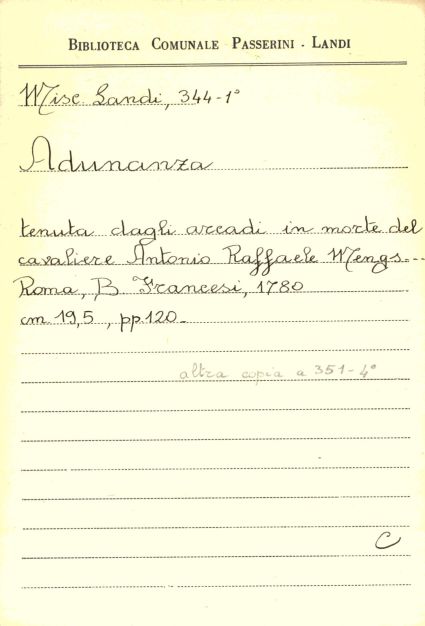 BIBLIOTECA COMUNALE PASSERINI - LANDI
Misc. Landi, 344-1°
Adunanza
tenuta dagli arcadi in morte del
cavaliere Antonio Raffaele Mengs...
Roma, B. Francesi, 1780
cm. 19,5, pp. 120.
altra copia a 351-4°
C